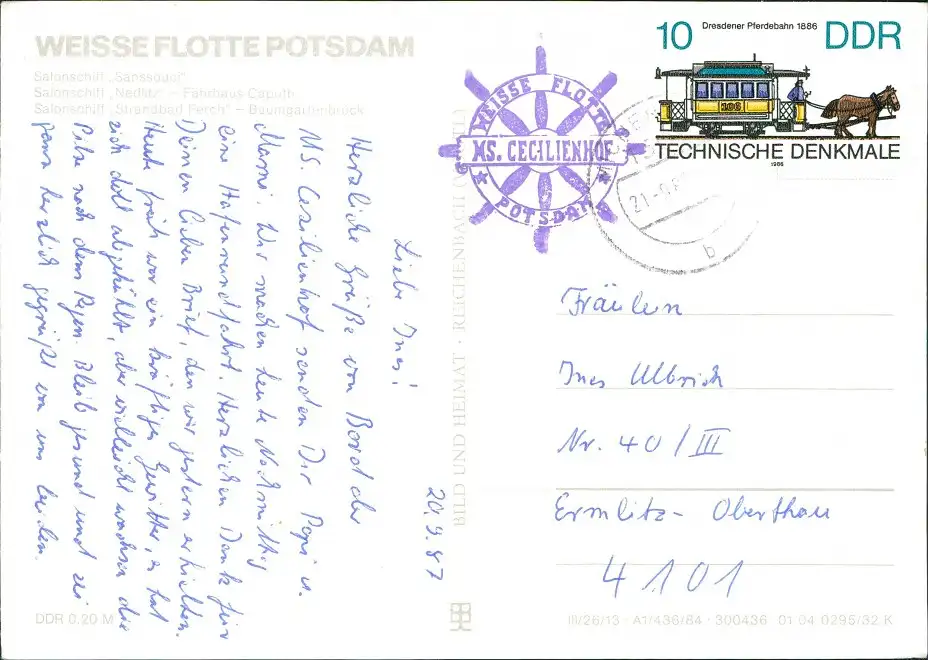 WEISSE FLOTTE POTSDAM
Salonschiff „Sanssouci“
Salonschiff „Nedlitz“ – Fährhaus Caputh
Salonschiff „Strandbad Ferch“ – Baumgartenbrück
WEISSE FLOTTE
MS. CECILIENHOF
POTSDAM
Dresdener Pferdebahn 1886
10 DDR
106
TECHNISCHE DENKMALE
1986
b
20.9.87
Liebe Ines!
Herzliche Grüße von Bord der
MS. Cezilienhof senden Dir Papi u.
Mami. Wir machen heute Nachmittag
eine Hafenrundfahrt. Herzlichen Dank für
Deinen lieben Brief, den wir gestern erhielten.
Heute früh war ein kräftiger Gewitter, es hat
sich doll abgekühlt, aber vielleicht wachsen die
Pilze nach dem Regen. Bleib gesund und sei
ganz herzlich gegrüßt von uns beiden.
BILD UND HEIMAT · REICHENBACH
Fräulein
Ines Ulbrich
Nr. 40/III
Ermlitz- Oberthau
4101
DDR 0,20 M
III/26/13 · A1/436/84 · 300436 01 04 0295/32 K